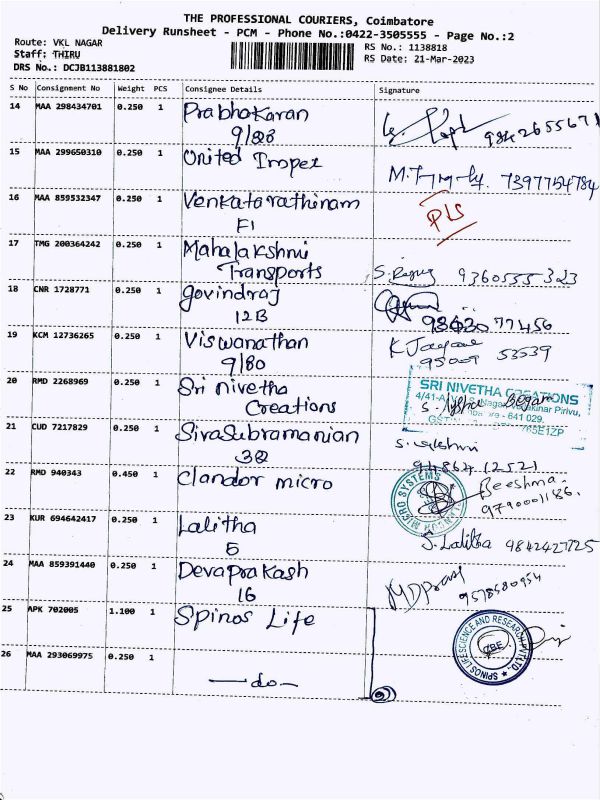 THE PROFESSIONAL COURIERS, Coimbatore
Delivery Runsheet - PCM - Phone No.:0422-3505555 - Page No.:2
Route: VKL NAGAR
RS No.: 1138818
Staff: THIRU
RS Date: 21-Mar-2023
DRS No.: DCJB113881802
S No Consignment No Weight PCS Consignee Details Signature
14 MAA 298434701 0.250 1 Prabhakaran 9842655671
9/2B
15 MAA 299650310 0.250 1 United Impex 7397754784
16 MAA 859532347 0.250 1 Venkatarathinam
F1
17 TMG 200364242 0.250 1 Mahalakshmi
Transports 9360555323
18 CNR 1728771 0.250 1 Govindraj
12B 77456
19 KCM 12736265 0.250 1 Viswanathan
9/80 53539
20 RMD 2268969 0.250 1 Sri nivetha SRI NIVETHA CREATIONS
Creations 641 029.
21 CUD 7217829 0.250 1 Sivasubramanian
3Q
22 RMD 940343 0.450 1 Clandor micro Beeshma.
9790001186.
23 KUR 694642417 0.250 1 Lalitha
5 J. Lalitha 9842427725
24 MAA 859391440 0.250 1 Devaprakash
16 9578580954
25 APK 702005 1.100 1 Spinos Life SPINOS LIFE SCIENCE AND RESEARCH PVT LTD. CBE
26 MAA 293069975 0.250 1
—do—